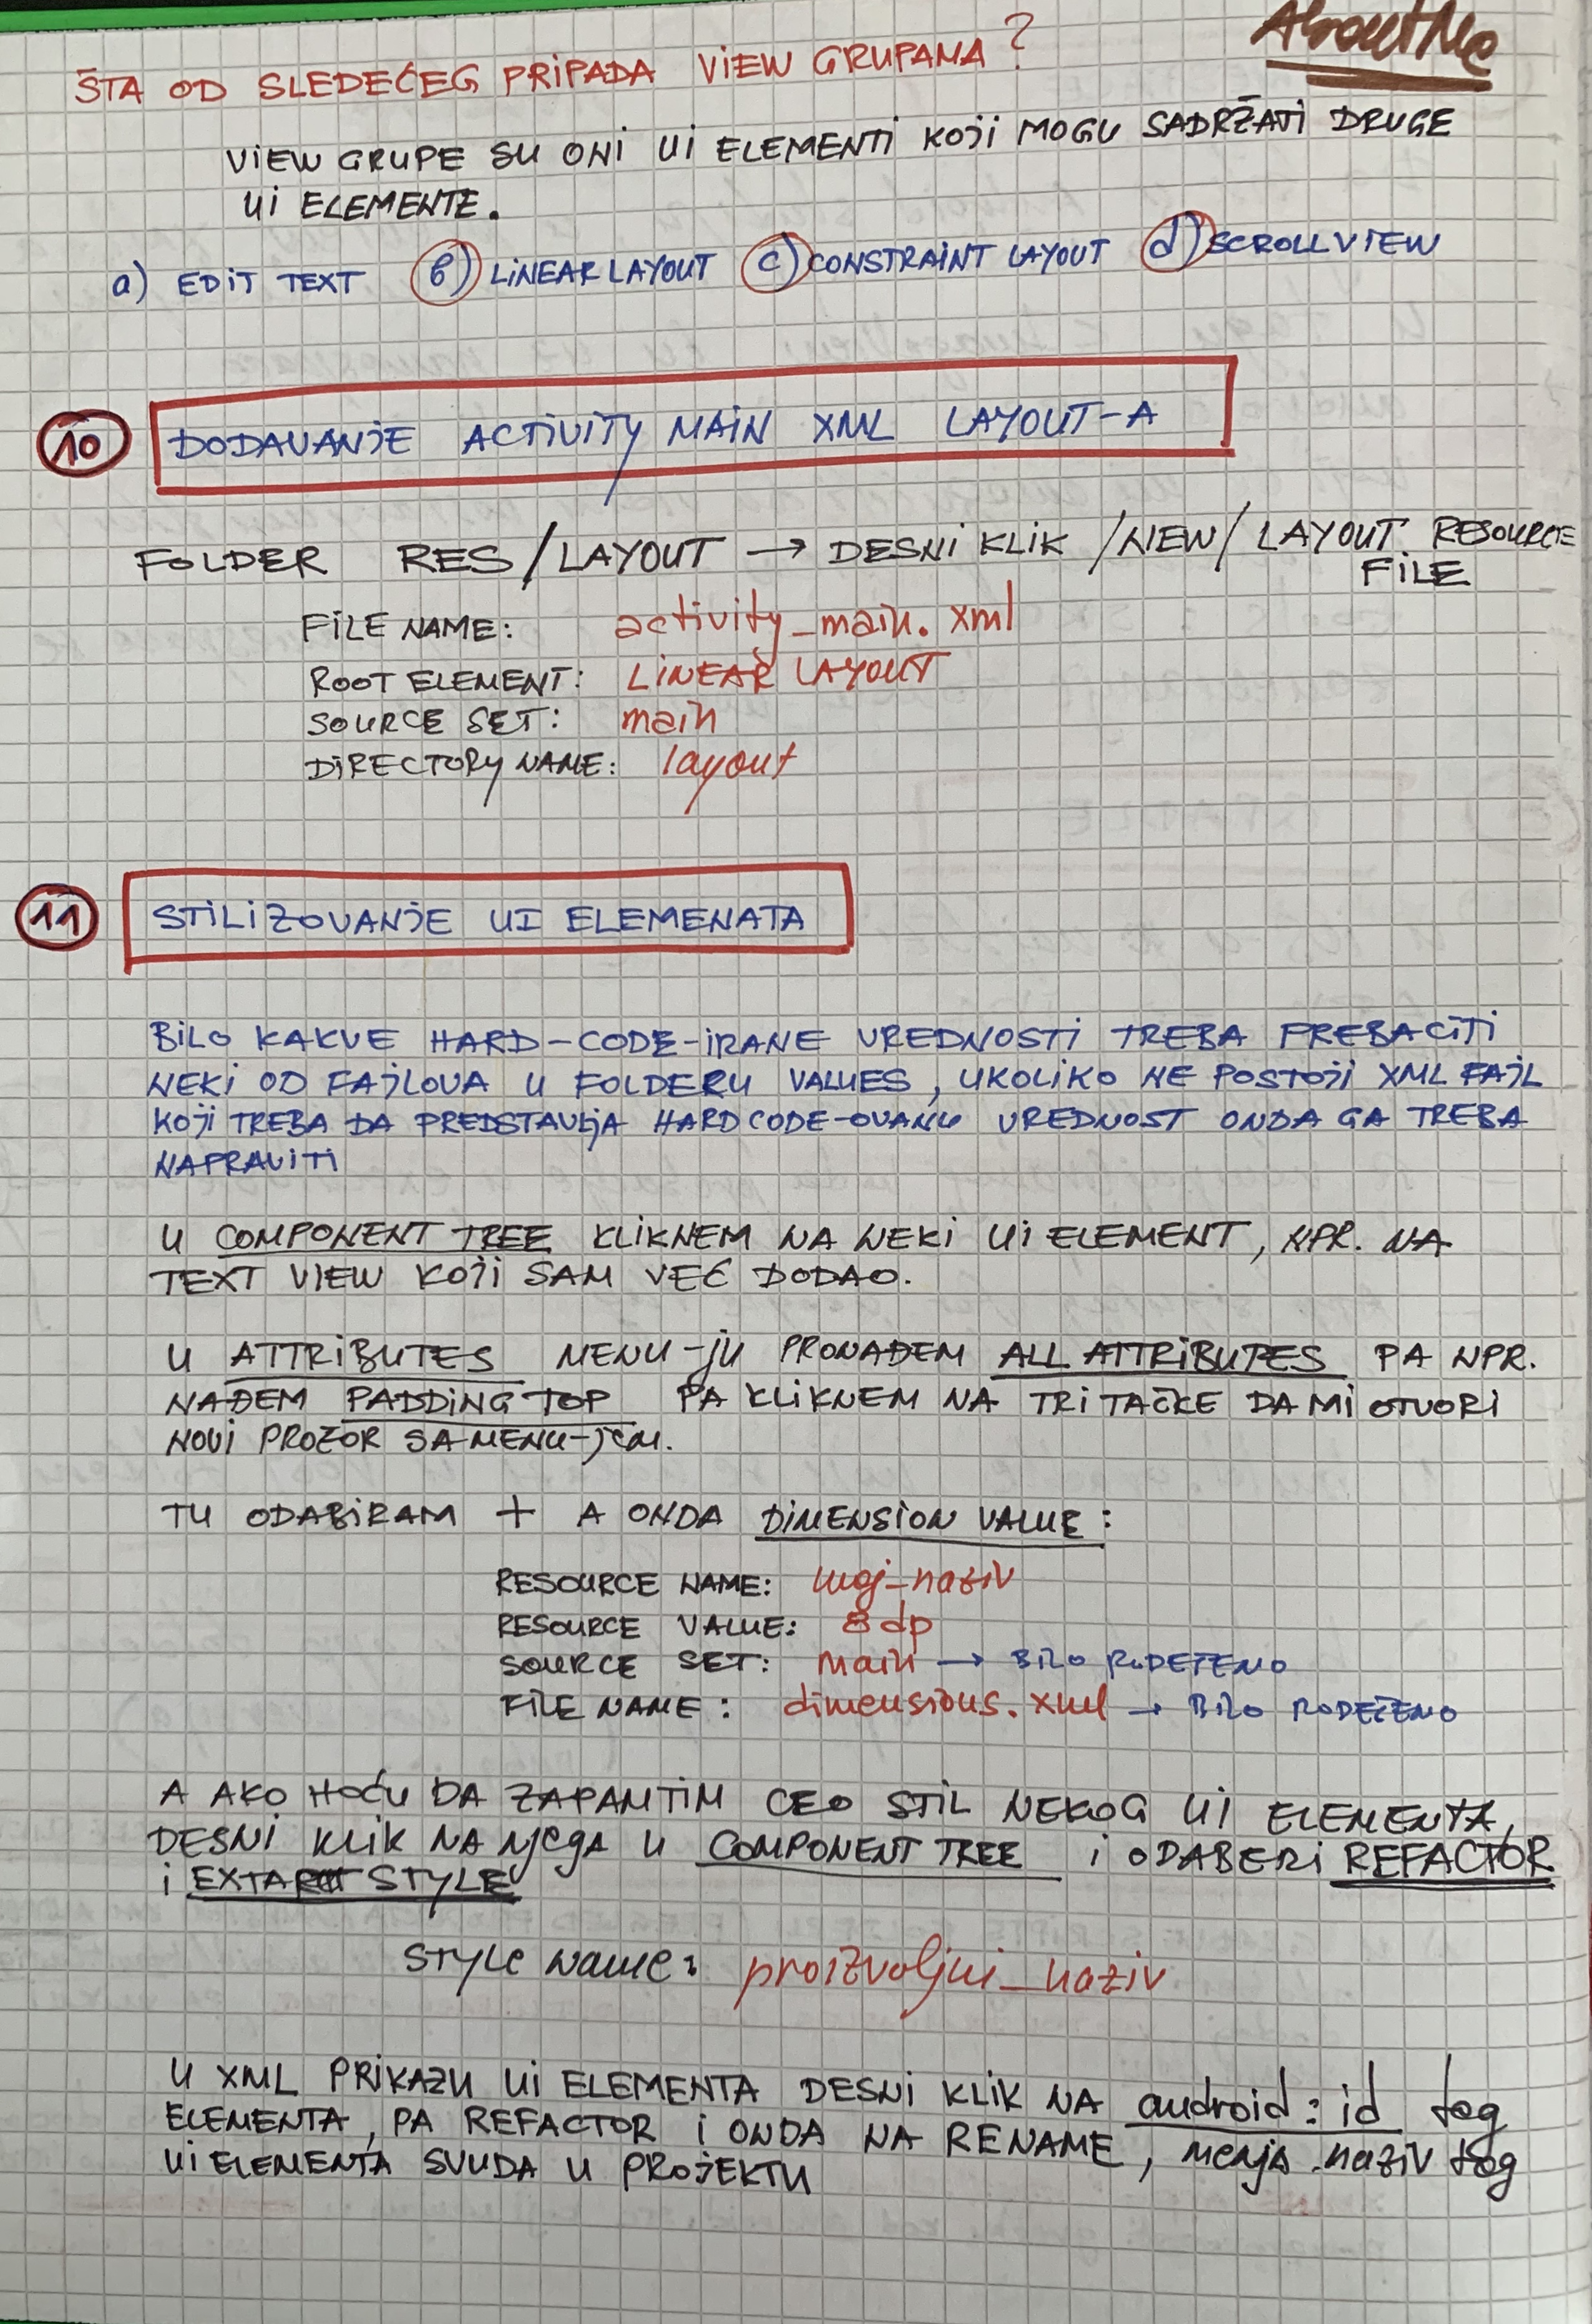 AboutMe
ŠTA OD SLEDEĆEG PRIPADA VIEW GRUPAMA?
VIEW GRUPE SU ONI UI ELEMENTI KOJI MOGU SADRŽATI DRUGE
UI ELEMENTE.
a) EDIT TEXT b) LINEAR LAYOUT c) CONSTRAINT LAYOUT d) SCROLLVIEW
10 DODAVANJE ACTIVITY MAIN XML LAYOUT-A
FOLDER RES/LAYOUT → DESNI KLIK /NEW/ LAYOUT RESOURCE
FILE
FILE NAME: activity_main.xml
ROOT ELEMENT: LINEAR LAYOUT
SOURCE SET: main
DIRECTORY NAME: layout
11 STILIZOVANJE UI ELEMENATA
BILO KAKVE HARD-CODE-IRANE VREDNOSTI TREBA PREBACITI
NEKI OD FAJLOVA U FOLDERU VALUES, UKOLIKO NE POSTOJI XML FAJL
KOJI TREBA DA PREDSTAVLJA HARDCODE-OVANU VREDNOST ONDA GA TREBA
NAPRAVITI
U COMPONENT TREE KLIKNEM NA NEKI UI ELEMENT, NPR. NA
TEXT VIEW KOJI SAM VEĆ DODAO.
U ATTRIBUTES MENU-JU PRONAĐEM ALL ATTRIBUTES PA NPR.
NAĐEM PADDING TOP PA KLIKNEM NA TRI TAČKE DA MI OTVORI
NOVI PROZOR SA MENU-JEM.
TU ODABIRAM + A ONDA DIMENSION VALUE:
RESOURCE NAME: moj_naziv
RESOURCE VALUE: 8dp
SOURCE SET: main → BILO PODEŠENO
FILE NAME: dimensions.xml → BILO PODEŠENO
A AKO HOĆU DA ZAPAMTIM CEO STIL NEKOG UI ELEMENTA,
DESNI KLIK NA NJEGA U COMPONENT TREE I ODABERI REFACTOR
I STYLE
STYLE NAME: proizvoljni_naziv
U XML PRIKAZU UI ELEMENTA DESNI KLIK NA android:id tog
ELEMENTA, PA REFACTOR I ONDA NA RENAME, menja naziv tog
UI ELEMENTA SVUDA U PROJEKTU